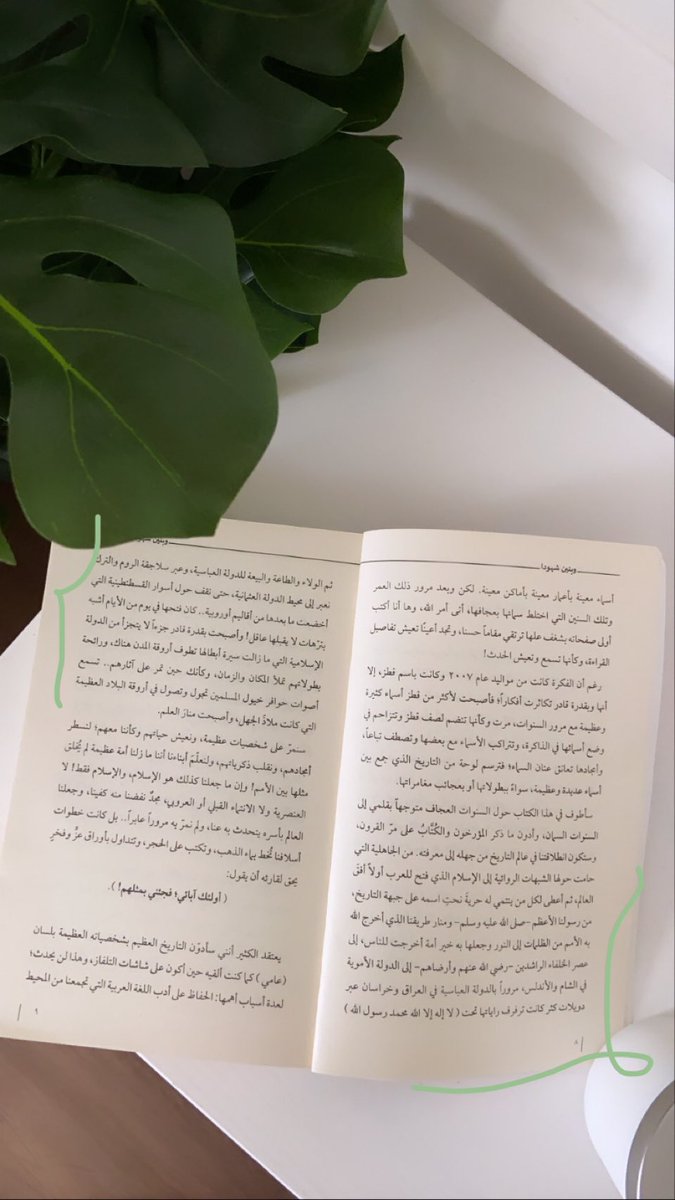 وبنين شهودا
أسماء معينة بأعمار معينة بأماكن معينة. لكن وبعد مرور ذلك العمر
وتلك السنين التي اختلط سمانها بعجافها، أتى أمر الله، وها أنا أكتب
أولى صفحاته بشغف علها ترتقي مقاماً حسنا، وتجد أعينًا تعيش تفاصيل
القراءة، وكأنها تسمع وتعيش الحدث!
رغم أن الفكرة كانت من مواليد عام ٢٠٠٧ وكانت باسم قطز، إلا
أنها وبقدرة قادر تكاثرت أفكاراً؛ فأصبحت لأكثر من قطز أسماء كثيرة
وعظيمة مع مرور السنوات، مرت وكأنها تنتظم لصف قطز وتتزاحم في
وضع أسمائها في الذاكرة، وتتراكب الأسماء مع بعضها وتصطف تباعاً،
وأمجادها تعانق عنان السماء؛ فترسم لوحة من التاريخ الذي جمع بين
أسماء عديدة وعظيمة، سواءً ببطولاتها أو بعجائب مغامراتها.
سأطوف في هذا الكتاب حول السنوات العجاف متوجهاً بقلمي إلى
السنوات السمان، وأدون ما ذكر المؤرخون والكُتَّابُ على مرّ القرون،
وستكون انطلاقتنا في عالم التاريخ من جهله إلى معرفته. من الجاهلية التي
حامت حولها الشبهات الروائية إلى الإسلام الذي فتح للعرب أولاً أفق
العالم، ثم أعطى لكل من ينتمي له حرية نحتِ اسمه على جبهة التاريخ،
من رسولنا الأعظم -صلى الله عليه وسلم- ومنار طريقتا الذي أخرج الله
به الأمم من الظلمات إلى النور وجعلها به خير أمة أخرجت للناس، إلى
عصر الخلفاء الراشدين -رضي الله عنهم وأرضاهم- إلى الدولة الأموية
في الشام والأندلس، مروراً بالدولة العباسية في العراق وخراسان عبر
دويلات كثر كانت ترفرف راياتها تحت ( لا إله إلا الله محمد رسول الله )
٨
وبنين شهودا
ثم الولاء والطاعة والبيعة للدولة العباسية، وعبر سلاجقة الروم والترك
نعبر إلى محيط الدولة العثمانية، حتى نقف حول أسوار القسطنطينية التي
أخضعت ما بعدها من أقاليم أوروبية.. كان فتحها في يوم من الأيام أشبه
بترّهات لا يقبلها عاقل! وأصبحت بقدرة قادر جزءاً لا يتجزأ من الدولة
الإسلامية التي ما زالت سيرة أبطالها تطوف أروقة المدن هناك، ورائحة
بطولاتهم تملأ المكان والزمان، وكأنك حين تمر على آثارهم.. تسمع
أصوات حوافر خيول المسلمين تجول وتصول في أروقة البلاد العظيمة
التي كانت ملاذَ الجهل، وأصبحت منارَ العلم.
سنمرّ على شخصيات عظيمة، ونعيش حياتهم وكأننا معهم؛ لنسطر
أمجادهم، ونقلب ذكرياتهم، ولنعلّمَ أبناءنا أننا ما زلنا أمة عظيمة لم يُخلق
مثلها بين الأمم! وإن ما جعلنا كذلك هو الإسلام، والإسلام فقط! لا
العنصرية ولا الانتماء القبلي أو العروبي، مجدٌ نفضنا منه كفينا، وجعلنا
العالم بأسره يتحدث به عنا، ولم نمرّ به مروراً عابراً.. بل كانت خطوات
أسلافنا تُخط بماء الذهب، وتكتب على الحجر، وتتداول بأوراق عزٍّ وفخرٍ
يحق لقارئه أن يقول:
( أولئك آبائي؛ فجئني بمثلهم! ).
يعتقد الكثير أنني سأدوّن التاريخ العظيم بشخصياته العظيمة بلسان
(عامي) كما كنت ألقيه حين أكون على شاشات التلفاز، وهذا لن يحدث؛
لعدة أسباب أهمها: الحفاظ على أدب اللغة العربية التي تجمعنا من المحيط
٩